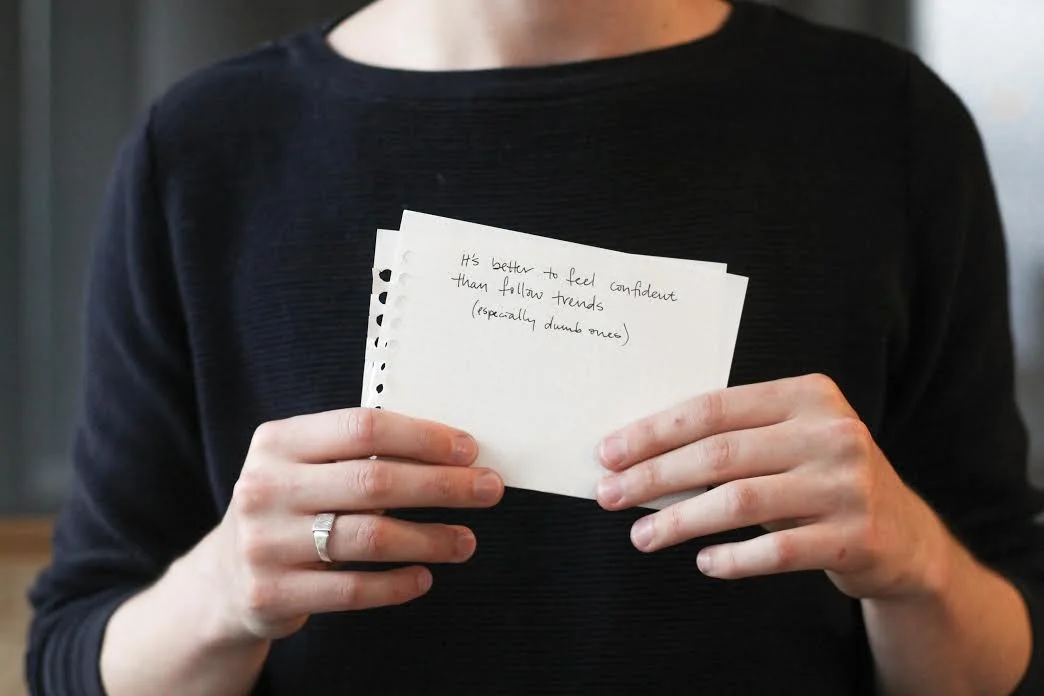 It's better to feel confident
than follow trends
(especially dumb ones)